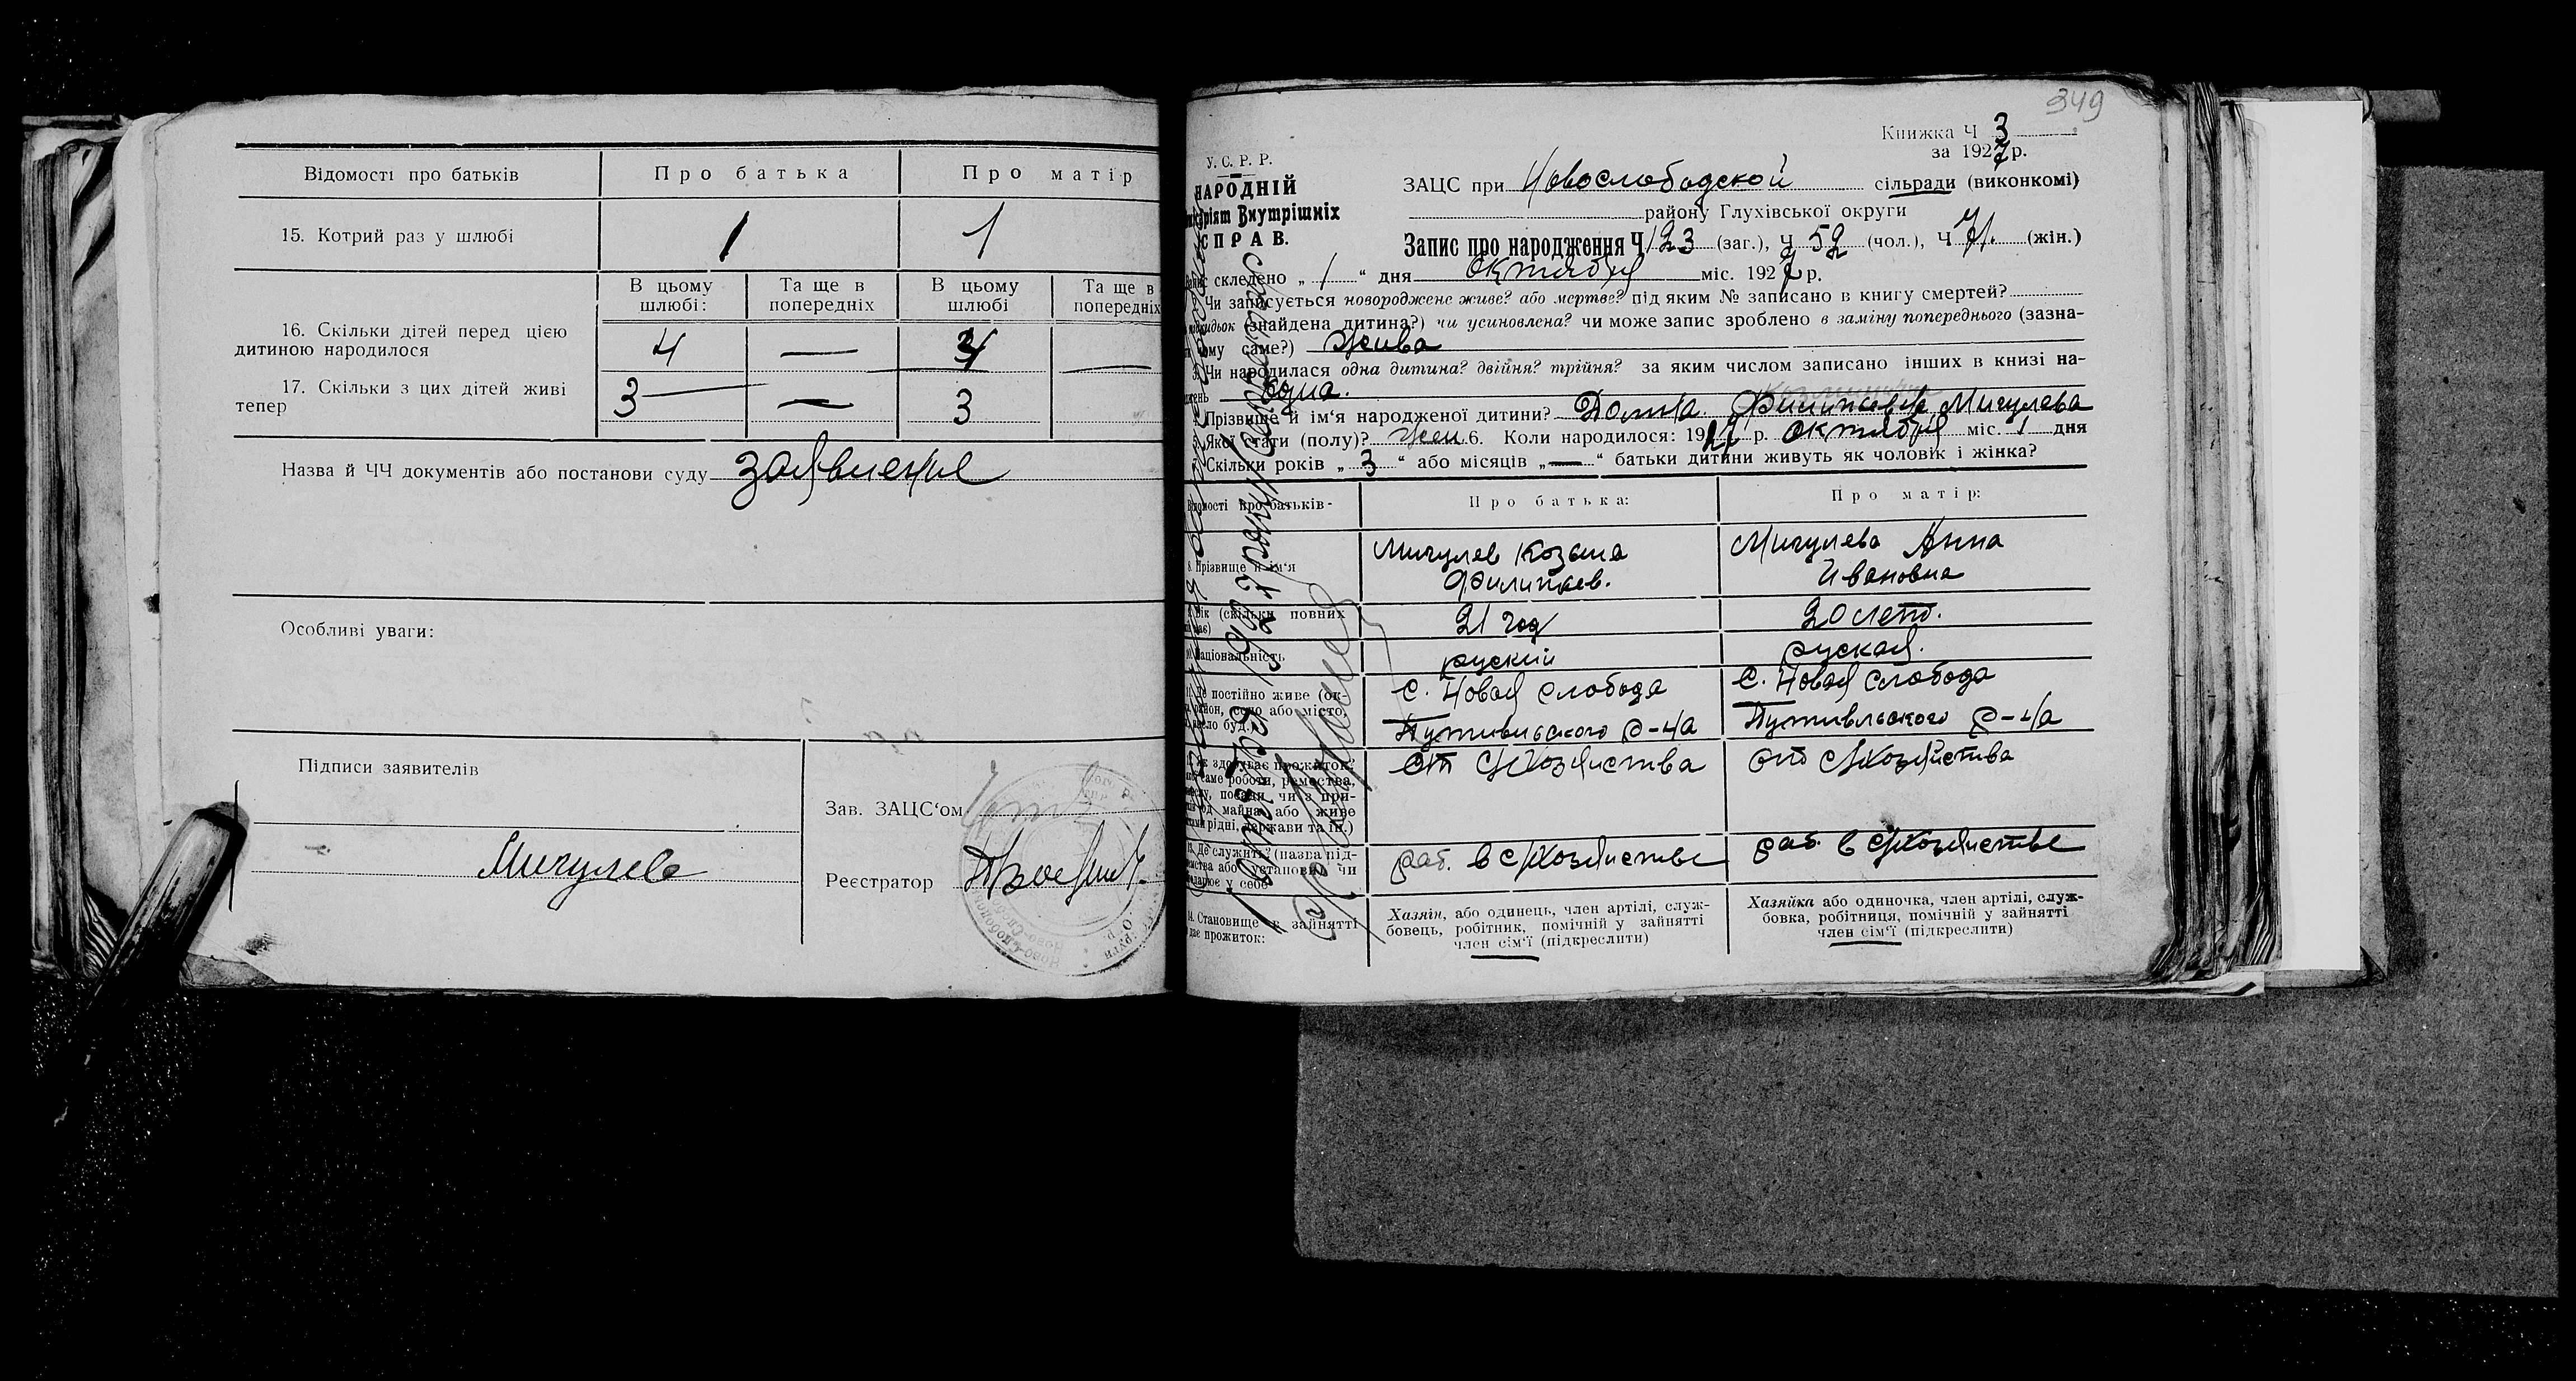 Відомості про батьків
Про батька
Про матір
15. Котрий раз у шлюбі
1
1
В цьому шлюбі:
Та ще в попередніх
В цьому шлюбі
Та ще в попередніх
16. Скільки дітей перед цією
дитиною народилося
4 — 4 —
17. Скільки з цих дітей живі
тепер
3 — 3
Назва й ЧЧ документів або постанови суду заявление
Особливі уваги:
Підписи заявителів
Зав. ЗАЦС‘ом
Мигулева
Реєстратор
349
Книжка Ч 3
за 1927 р.
У. С. Р. Р.
НАРОДНІЙ
Внутрішніх
СПРАВ.
ЗАЦС при Новослободской сільради (виконкомі)
району Глухівської округи
Запис про народження Ч 123 (заг.), Ч 52 (чол.), Ч 71. (жін.)
складено „ 1 “ дня октября міс. 1927 р.
Чи записується новороджене живе? або мертве? під яким № записано в книгу смертей?
(знайдена дитина?) чи усиновлена? чи може запис зроблено в заміну попереднього (зазна-
чому саме?) жива
3. Чи народилася одна дитина? двійня? трійня? за яким числом записано інших в книзі на-
одна.
Прізвище й ім‘я народженої дитини? Домна Филипьевна Мигулева
Якої стати (полу)? жен 6. Коли народилося: 1927 р. октября міс. 1 дня
Скільки років „ 3 “ або місяців „ — “ батьки дитини живуть як чоловік і жінка?
Відомості про батьків -
Про батька:
Про матір:
8. Прізвище й ім‘я
Мигулев Козьма
Филипьев.
Мигулева Анна
Ивановна
9. Вік (скільки повних
21 год
20 лет.
10. Національність
руский
руская.
11. Де постійно живе (ок-
район, село або місто,
с. Новая Слобода
Путивльского р-на
с. Новая Слобода
Путивльского р-на
12. Як здобуває прожиток?
саме роботи, ремества,
посади, чи з при-
од майна або живе
рідні, держави та ін.)
от с/хозяиства
от с/хозяйства
13. Де служить? (назва під-
або установи, чи
у себе
раб. в с/хозяистве
раб. в с/хозяистве
14. Становище в зайнятті
дає прожиток:
Хазяїн, або одинець, член артілі, служ-
бовець, робітник, помічній у зайнятті
член сім‘ї (підкреслити)
Хазяйка або одиночка, член артілі, служ-
бовка, робітниця, помічній у зайнятті
член сім‘ї (підкреслити)